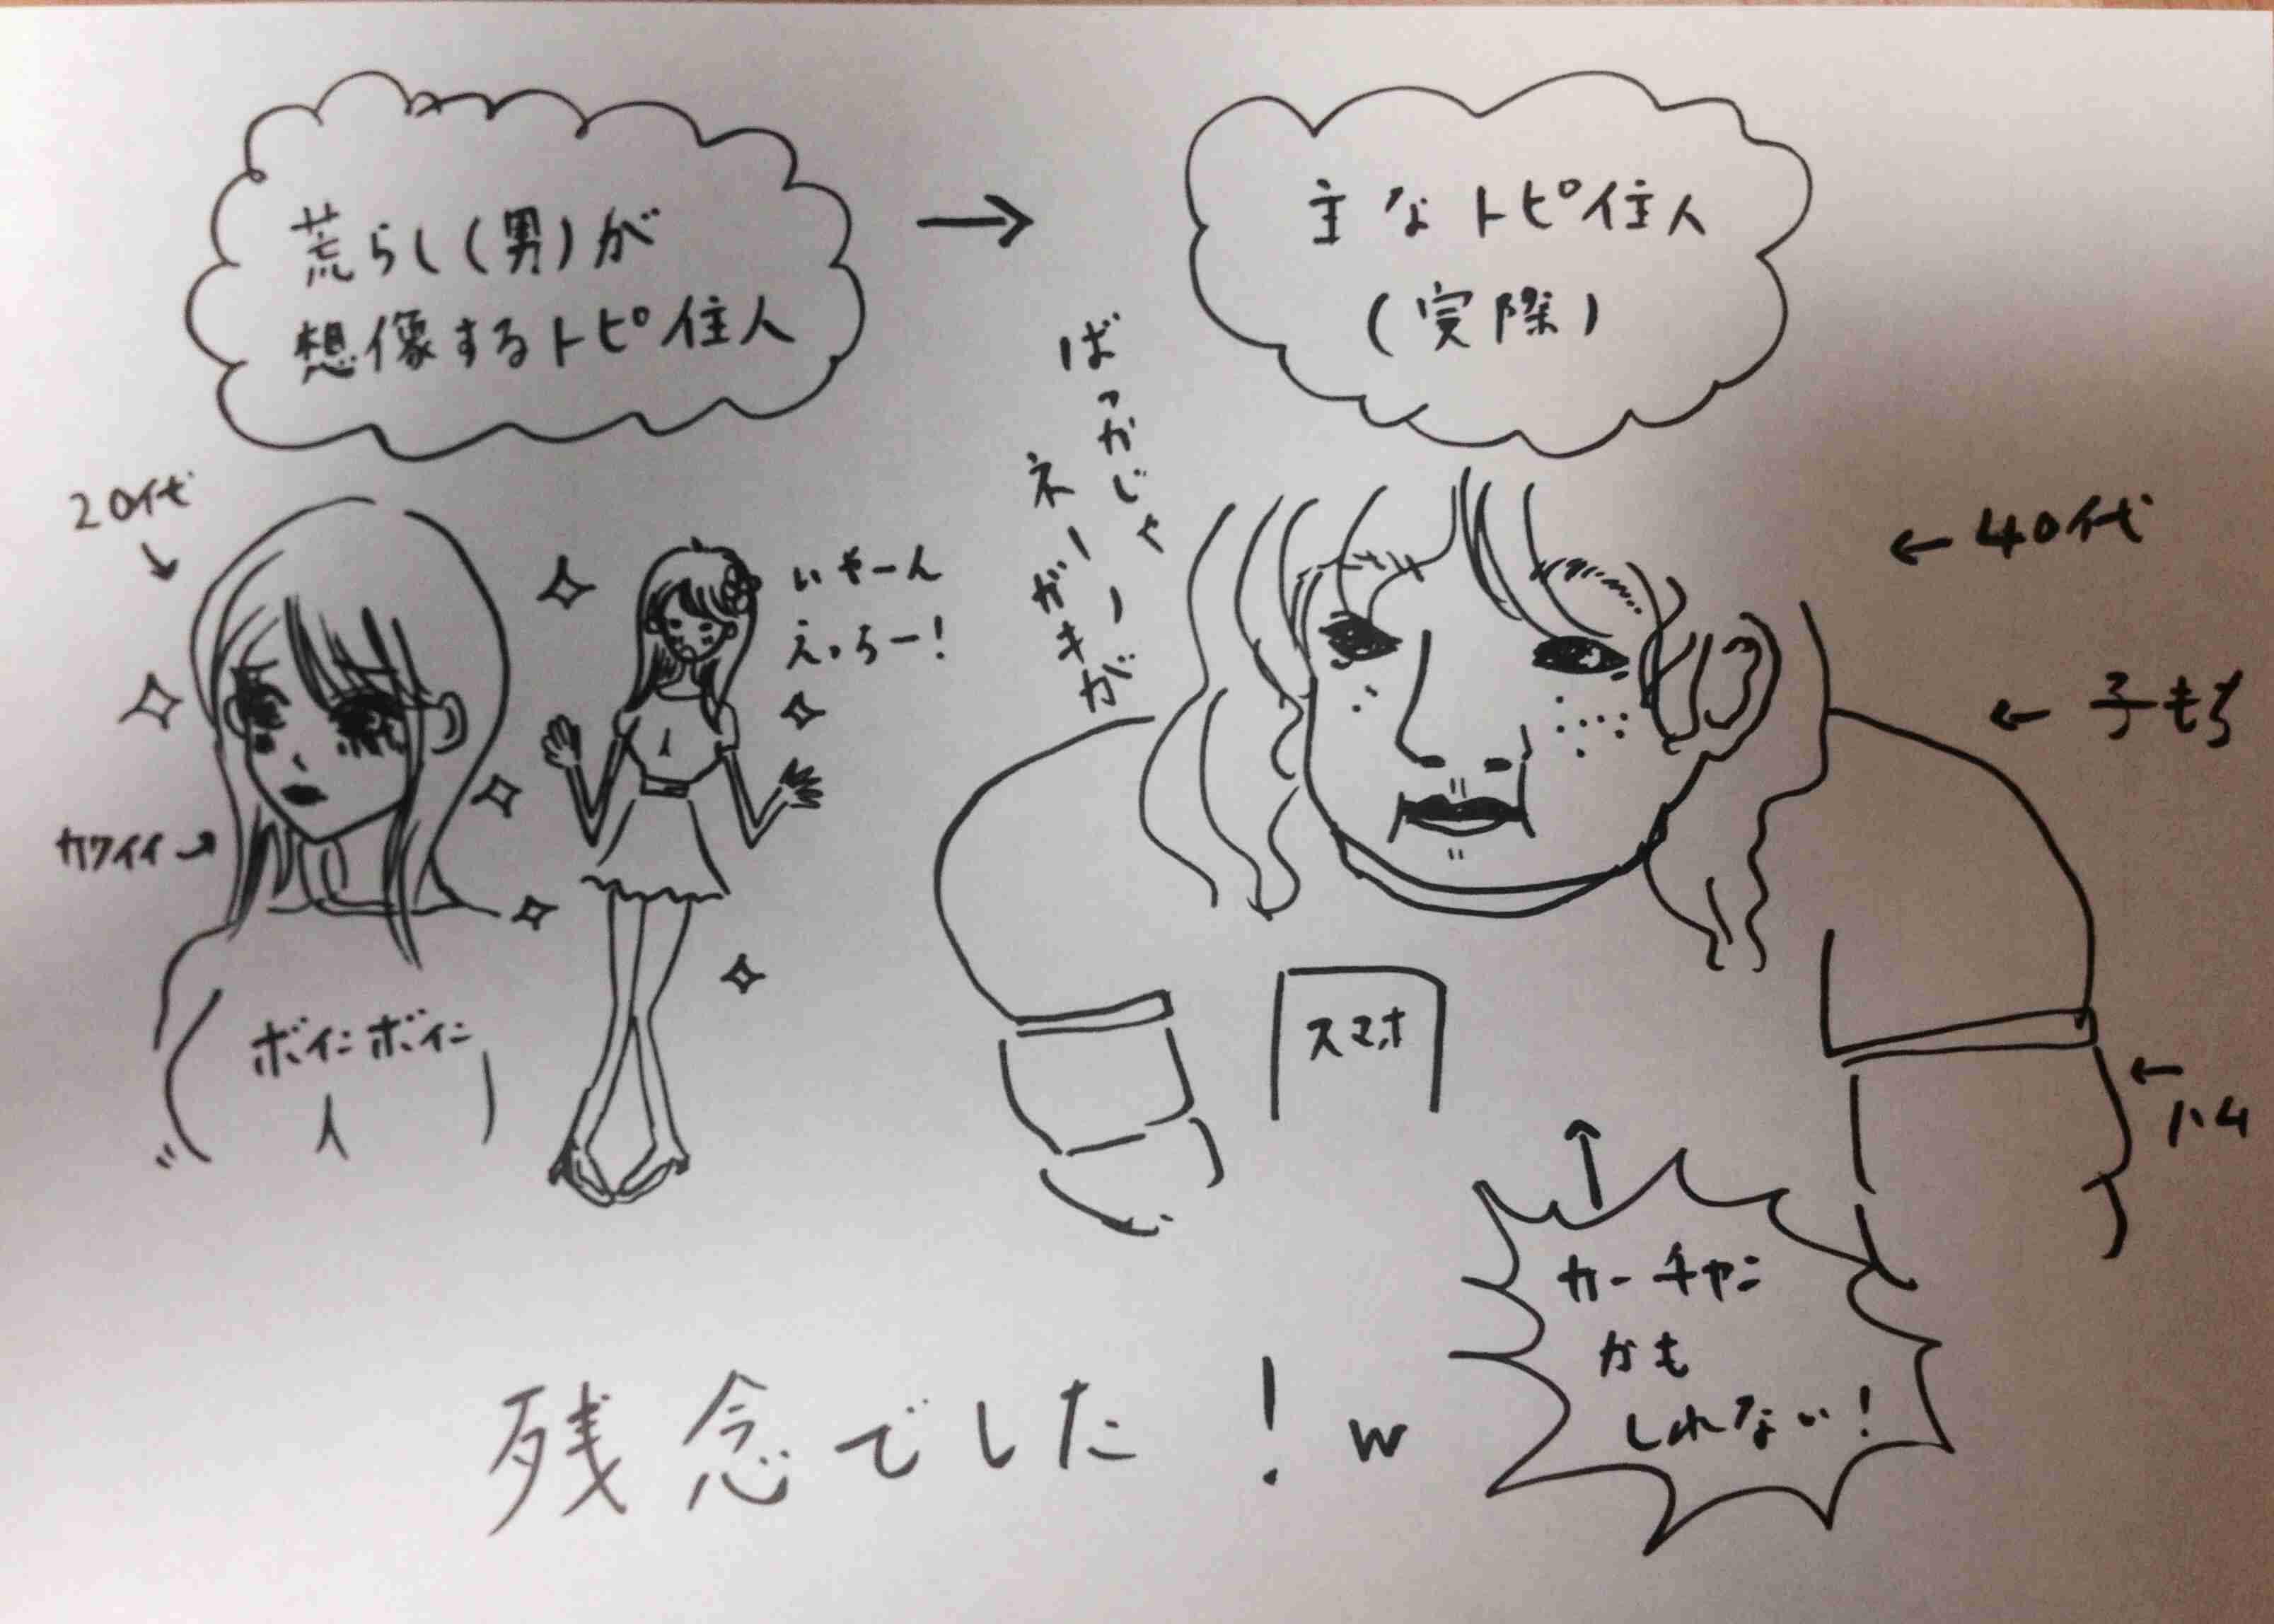 荒らし(男)が
想像するトピ住人
→
主なトピ住人
(実際)
20代
カワイイ
ボインボイン
いやーん
えっちー!
ばっかじゃ
ネーーが
ガキが
←40代
←子もち
←ハム
スマホ
カーチャン
かも
しれない!
残念でした!w